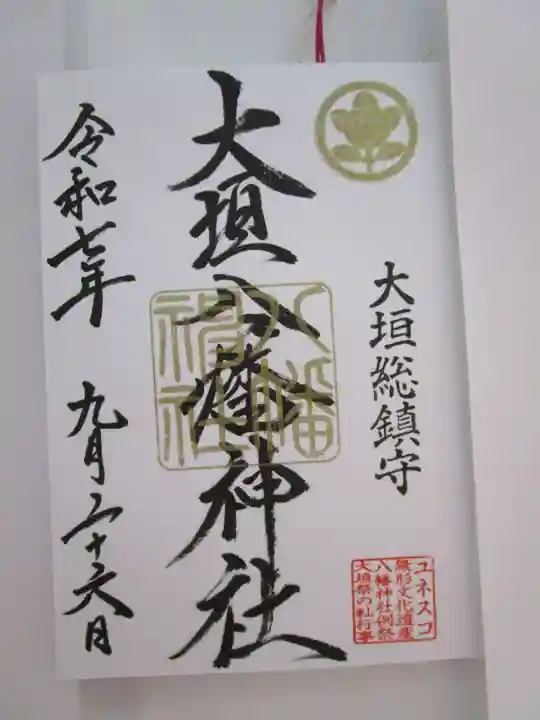 大垣総鎮守
ユネスコ
無形文化遺産
八幡神社例祭
大垣祭の軕行事
大垣八幡神社
八幡
神社
令和七年 九月二十六日